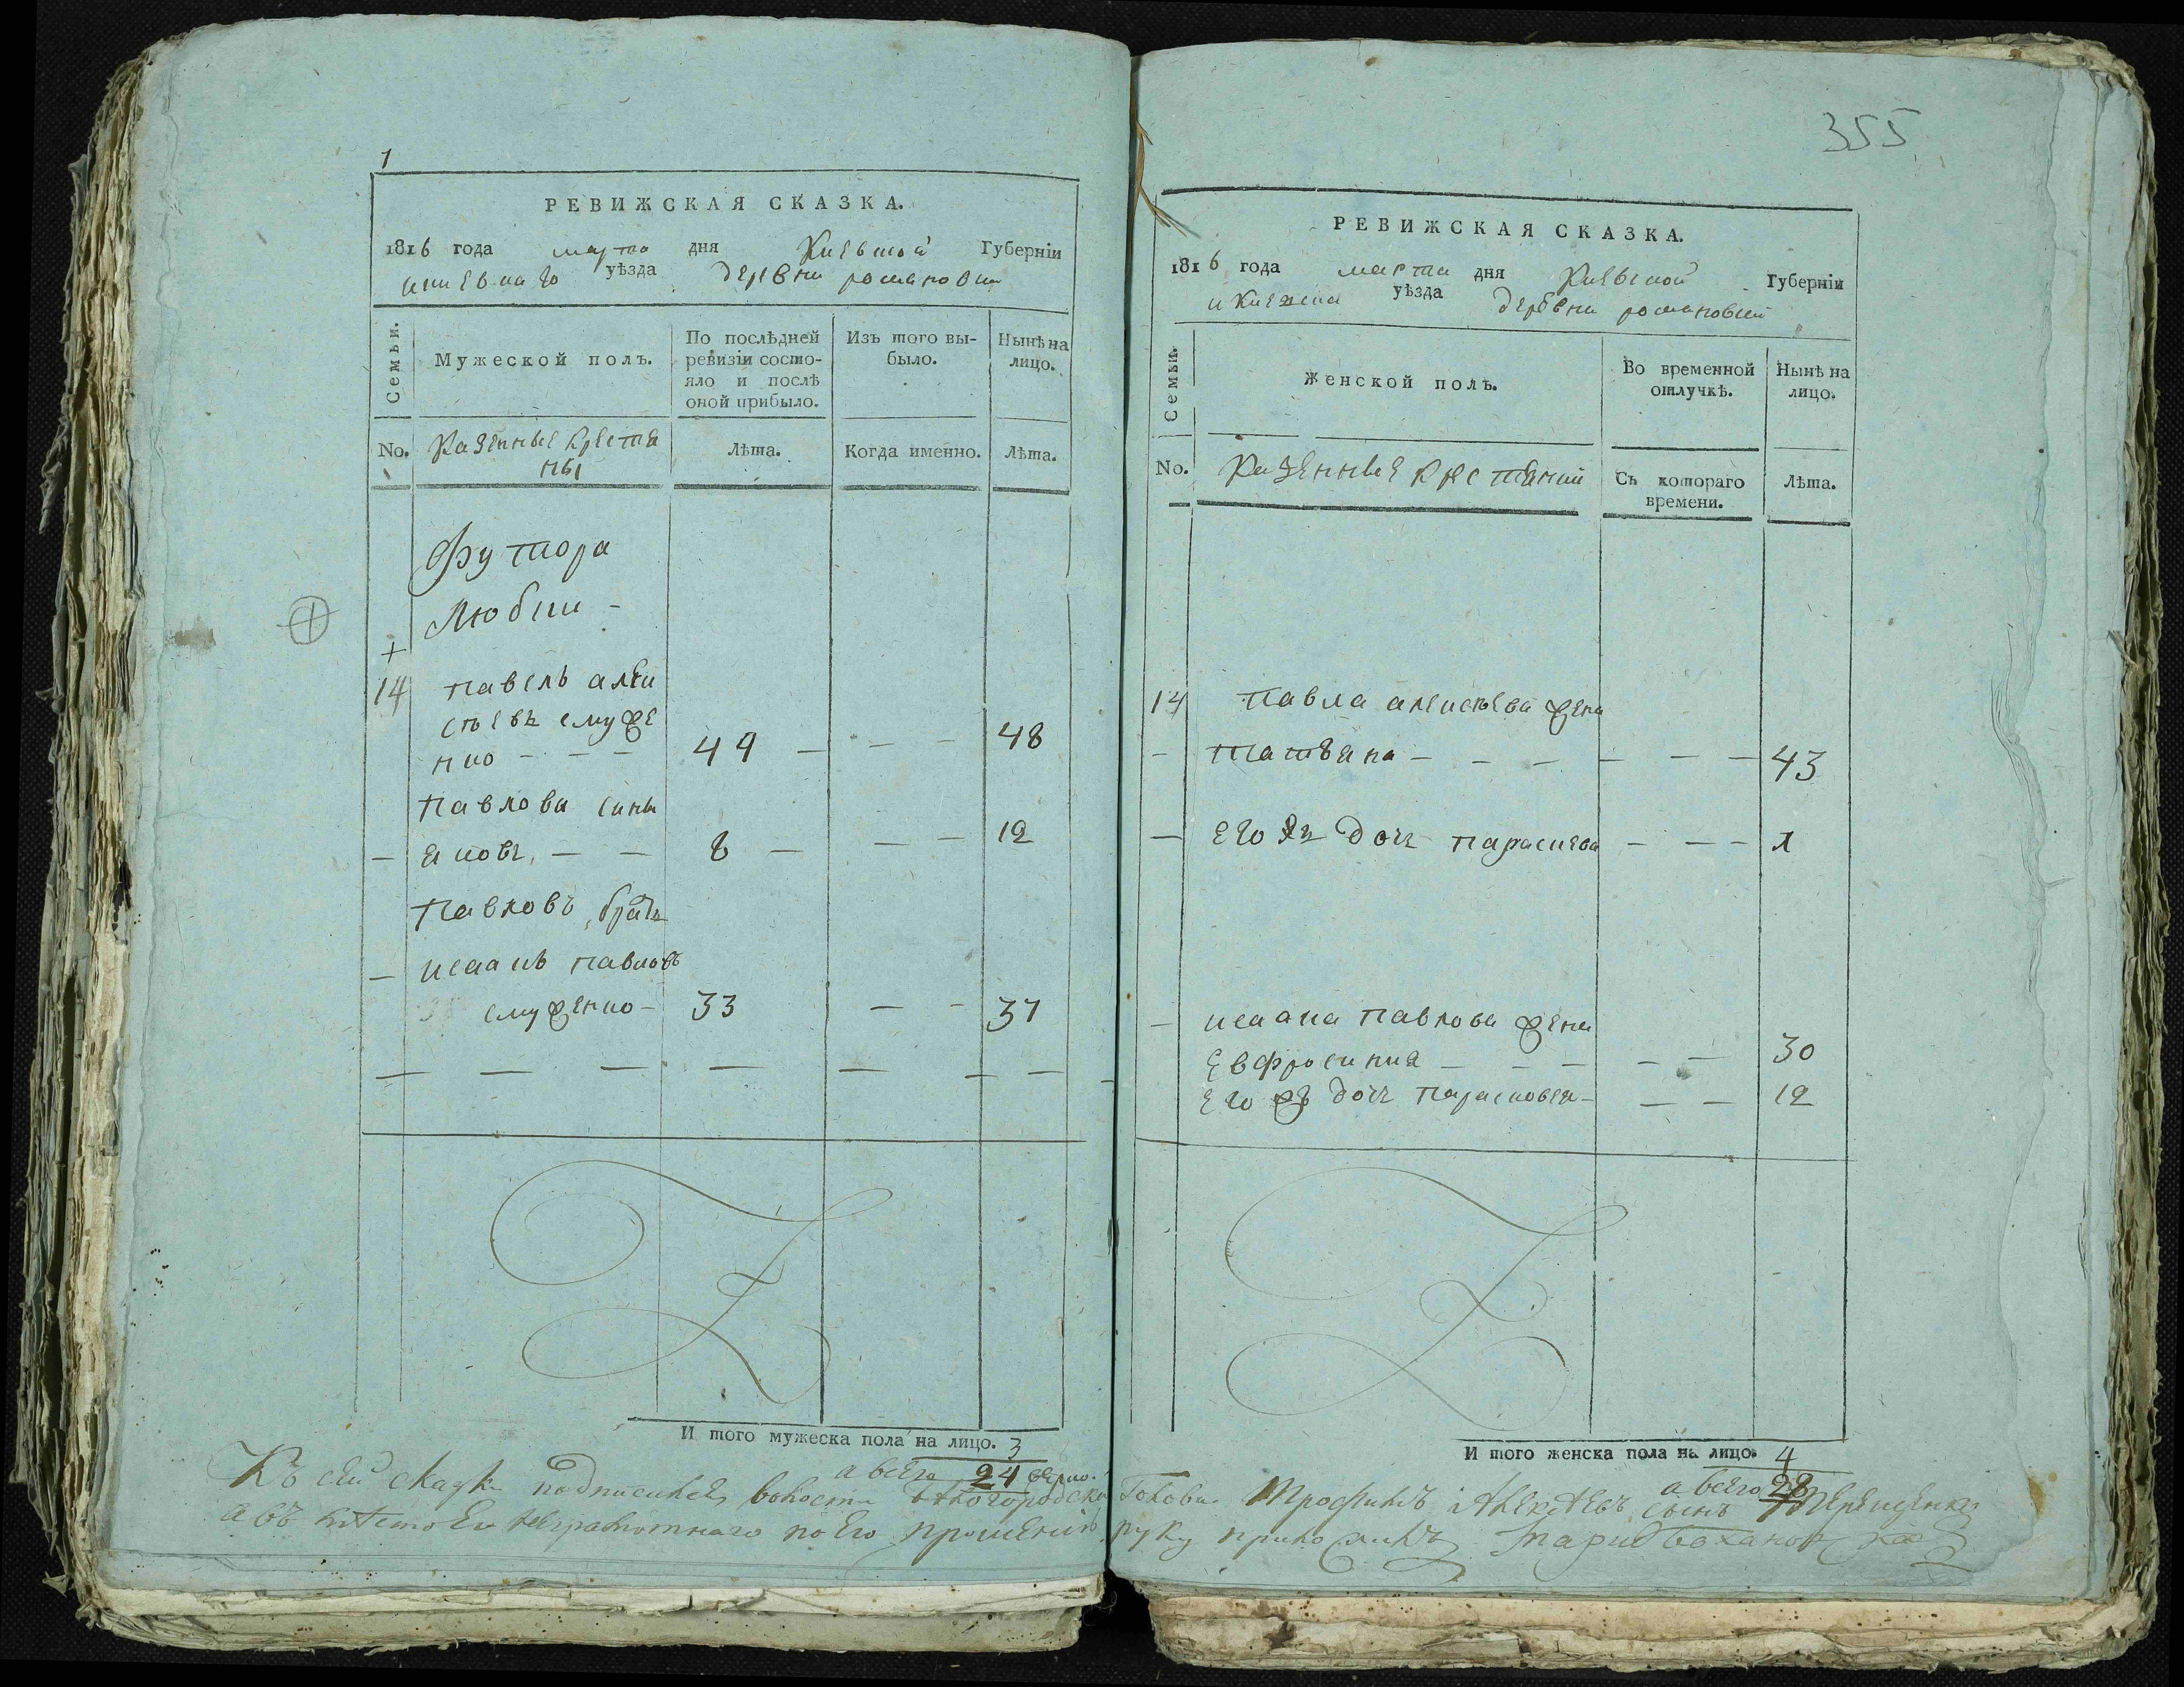 1
РЕВИЖСКАЯ СКАЗКА.
1816 года марта дня Киевской Губерніи
уѣзда деревни романовки
Семьи.
Мужеской полъ.
По послѣдней ревизіи состо-
яло и послѣ
оной прибыло.
Изъ того вы-
было.
Нынѣ на
лицо.
No.
Казенные крестя
ны
Лѣта.
Когда именно.
Лѣта.
Футора
Любки -
+
14 павелъ алеи
сѣевъ смуже
нко - - - 49 - - - 48
Павлова сины
- яковъ, - - 8 - - - 12
Павловъ братъ
- исаакъ павловъ
смуженко - 33 - - 37
И того мужеска пола на лицо. 3
а всего 24
Къ сей скаски подписался волости Бѣлогородски
а въ мѣсто Его неграмотнаго по его прошенію
355
РЕВИЖСКАЯ СКАЗКА.
1816 года марта дня Киевской Губерніи
уѣзда деревни романовки
Семьи.
Женской полъ.
Во временной
отлучкѣ.
Нынѣ на
лицо.
No.
Казенные крестянки
Съ котораго
времени.
Лѣта.
14 Павла алексѣева жена
- татьяна - - - - - - 43
- его жъ дочъ параскева - - - 1
- исаака павлова жена
Евфросиния - - - - - 30
его жъ дочъ парасковея - - - 12
И того женска пола на лицо. 4
а всего 28
Голова Трофимъ Алексѣевъ сынъ Терещенко
руку приложилъ